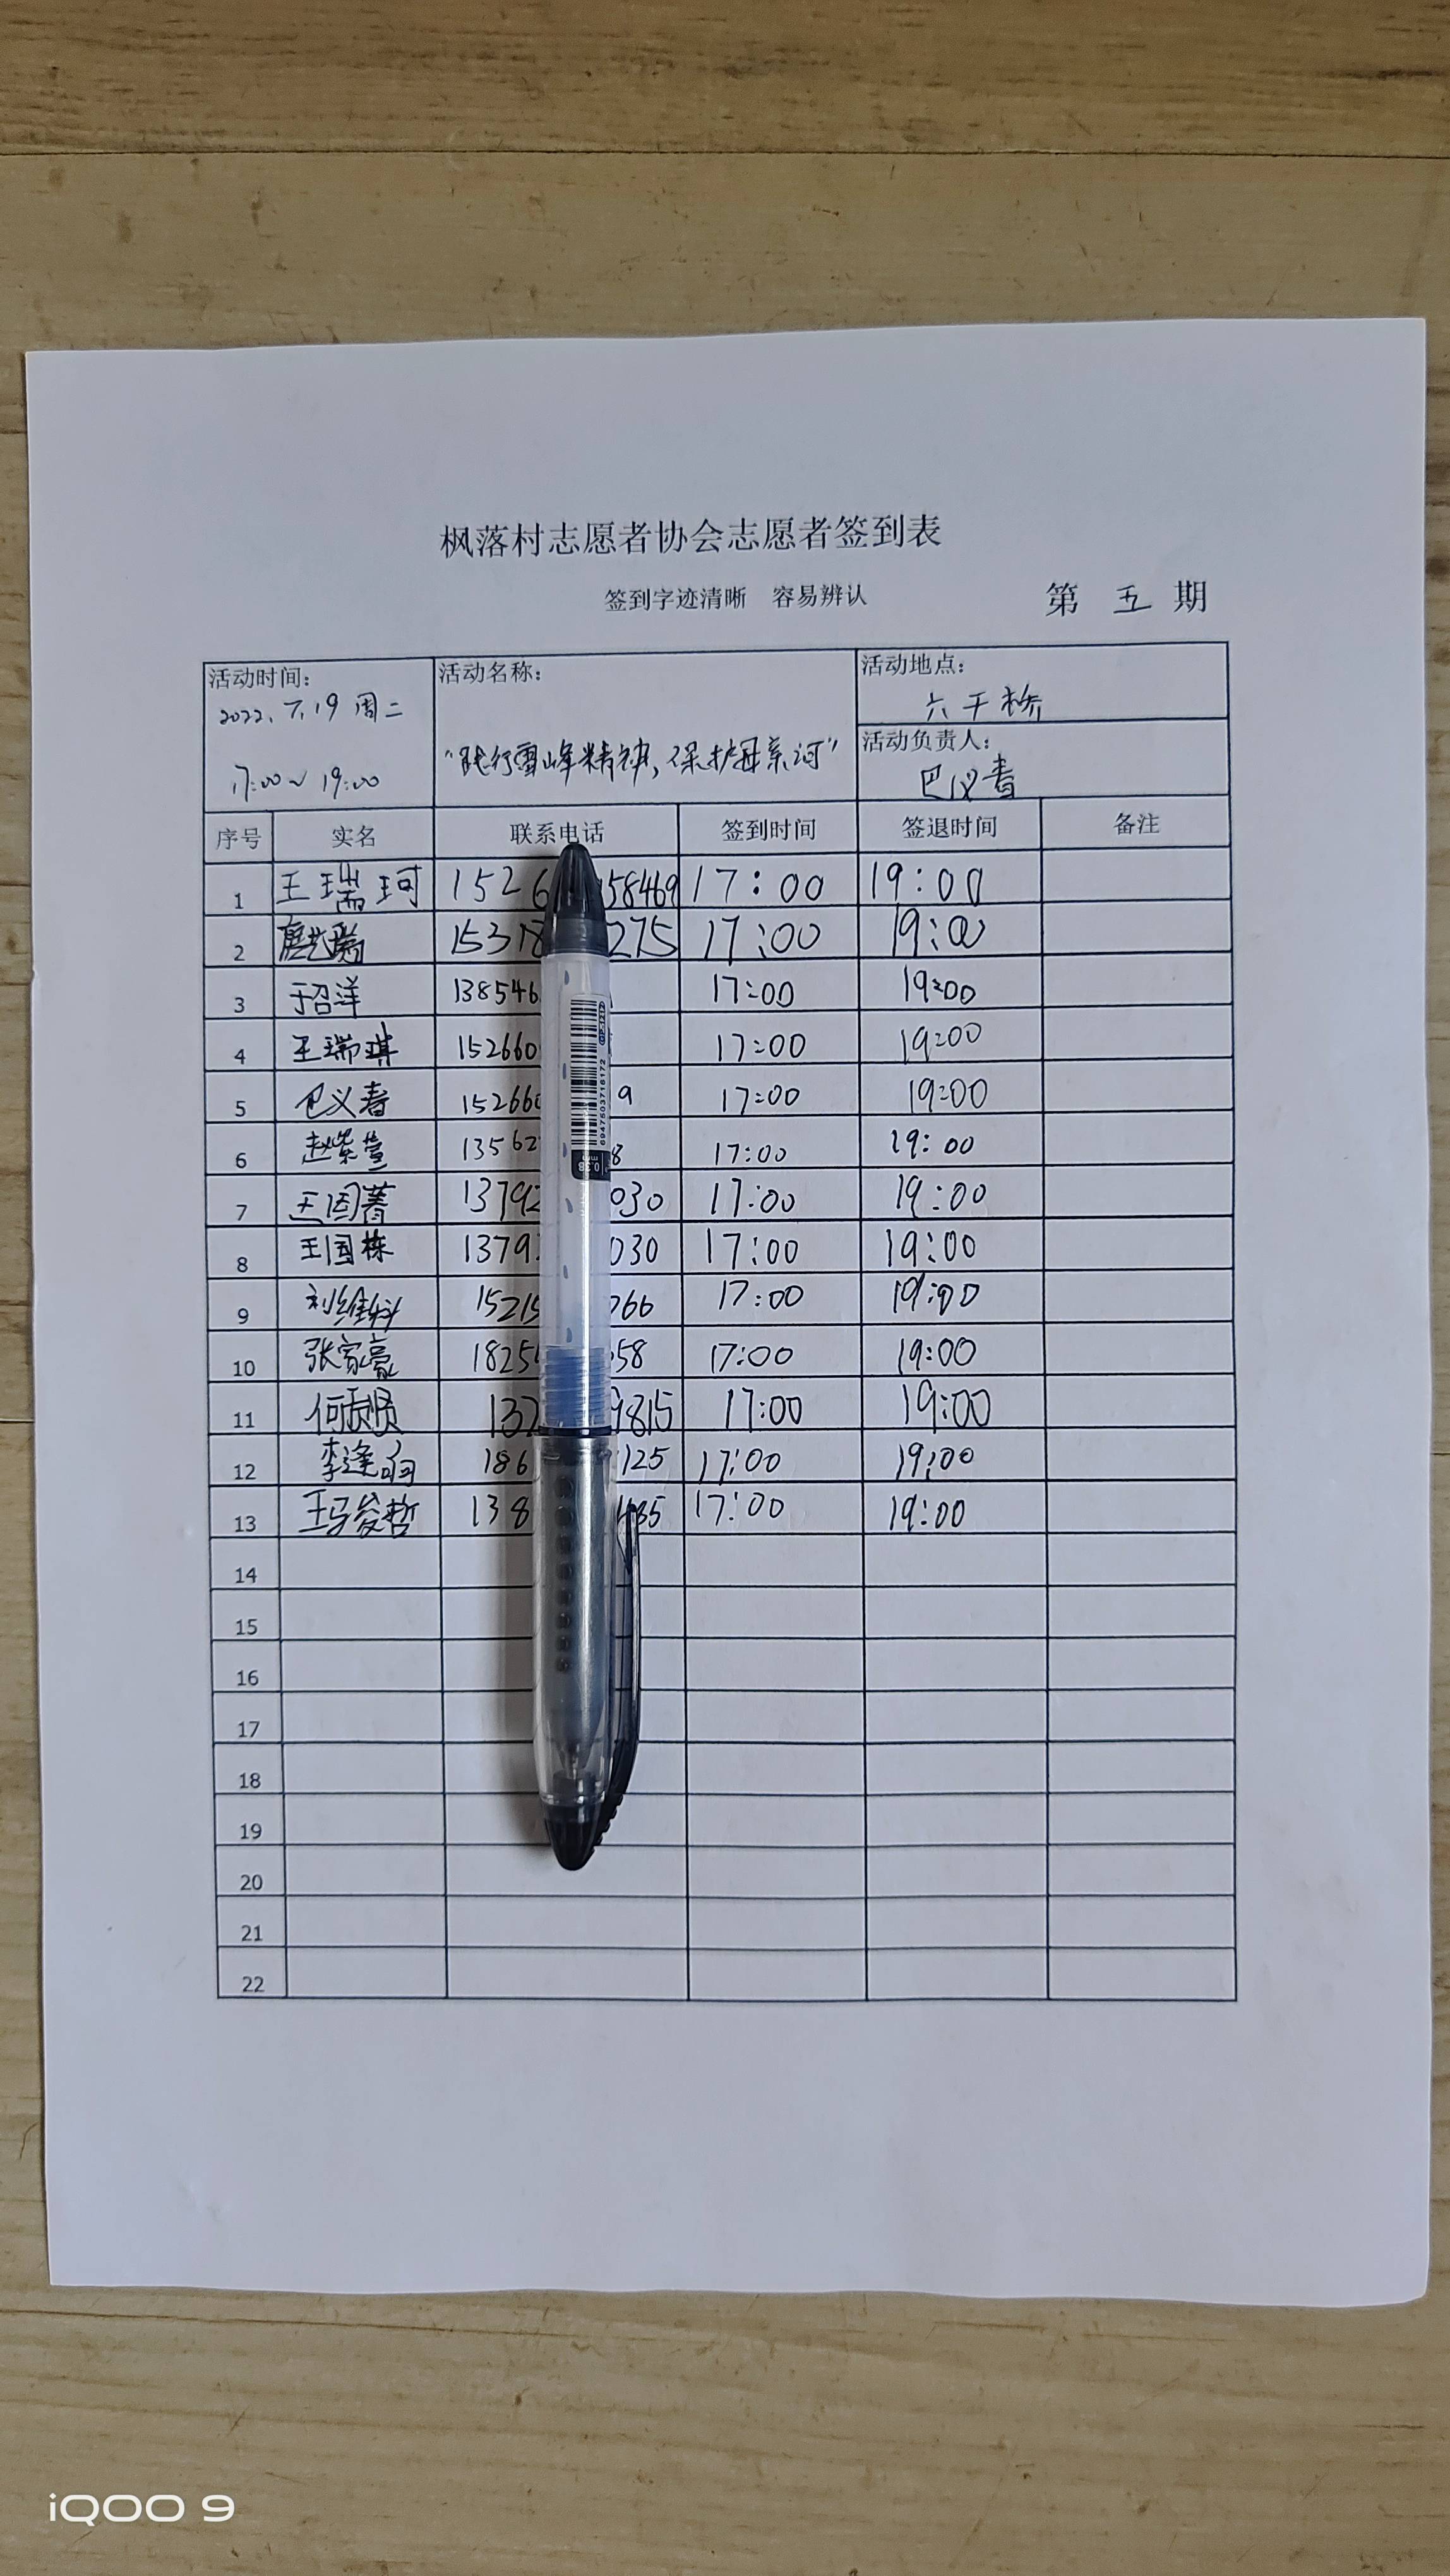 枫落村志愿者协会志愿者签到表
签到字迹清晰 容易辨认
第 五 期
活动时间：
2022.7.19 周二
17:00~19:00
活动名称：
“践行雪峰精神，保护母亲河”
活动地点：
六干桥
活动负责人：
巴义春
序号 实名 联系电话 签到时间 签退时间 备注
1 王瑞珂 1526 58469 17:00 19:00
2 15318 275 17:00 19:00
3 于召洋 138546 17:00 19:00
4 王瑞琪 152660 17:00 19:00
5 巴义春 152660 9 17:00 19:00
6 赵紫萱 13562 8 17:00 19:00
7 王国菁 13792 030 17:00 19:00
8 王国栋 1379 030 17:00 19:00
9 刘维科 15215 266 17:00 19:00
10 张家豪 1825 58 17:00 19:00
11 132 9815 17:00 19:00
12 186 125 17:00 19:00
13 138 485 17:00 19:00
14
15
16
17
18
19
20
21
22
6947503716172
0.38
mm
iQOO 9